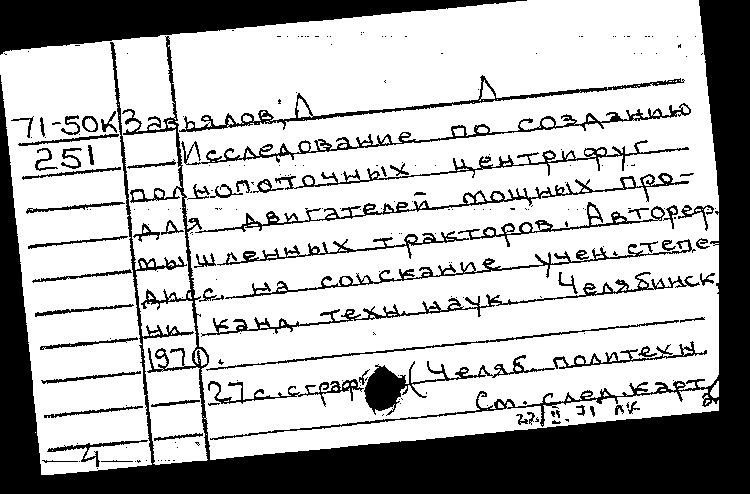 71-50К Завьялов, Л Л
251 Исследование по созданию
полнопоточных центрифуг
для двигателей мощных про-
мышленных тракторов. Автореф.
дисс. на соискание учен. степе-
ни канд. техн. наук. Челябинск,
1970.
27 с. с граф. (Челяб. политехн.
См. след. карт.
II. 71 ЛК
4